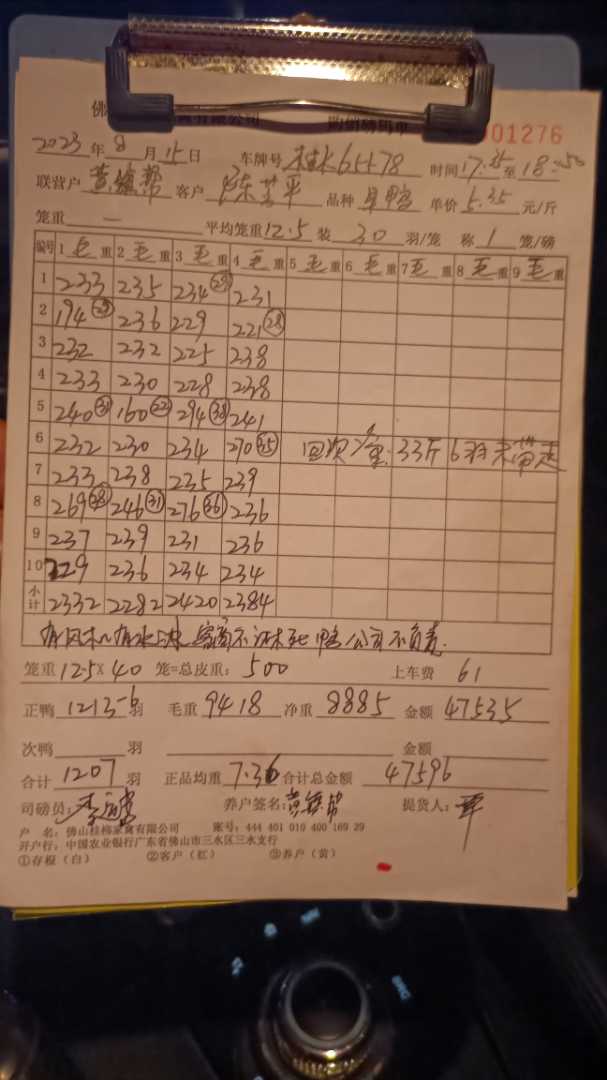 佛 有限公司 购销磅码单 001276
2023年8月15日 车牌号 桂K65578 时间17:35至18:50
联营户 黄 帮 客户 陈 平 品种 鸭 单价 5.35 元/斤
笼重 — 平均笼重12.5 装 30 羽/笼 称 1 笼/磅
编号 1 毛 重 2 毛 重 3 毛 重 4 毛 重 5 毛 重 6 毛 重 7 毛 重 8 毛 重 9 毛 重
1 233 235 234 231
2 194 236 229 221 28
3 232 232 225 238
4 233 230 228 238
5 240 31 160 22 294 38 241
6 232 230 234 270 35 回 33斤6羽未带走
7 233 238 235 239
8 269 38 246 31 276 36 236
9 237 239 231 236
10 229 236 234 234
小计 2332 2282 2420 2384
有风机有水 客商不 死鸭公司不负责.
笼重 12.5×40 笼=总皮重: 500 上车费 61
正鸭 1213-6 羽 毛重 9418 净重 8885 金额 47535
次鸭 羽 金额
合计 1207 羽 正品均重 7.36 合计总金额 47596
司磅员: 李 养户签名: 黄 帮 提货人: 平
户 名: 佛山桂柳家禽有限公司 账号: 444 401 010 400 169 29
开户行: 中国农业银行广东省佛山市三水区三水支行
①存根(白) ②客户(红) ③养户(黄)